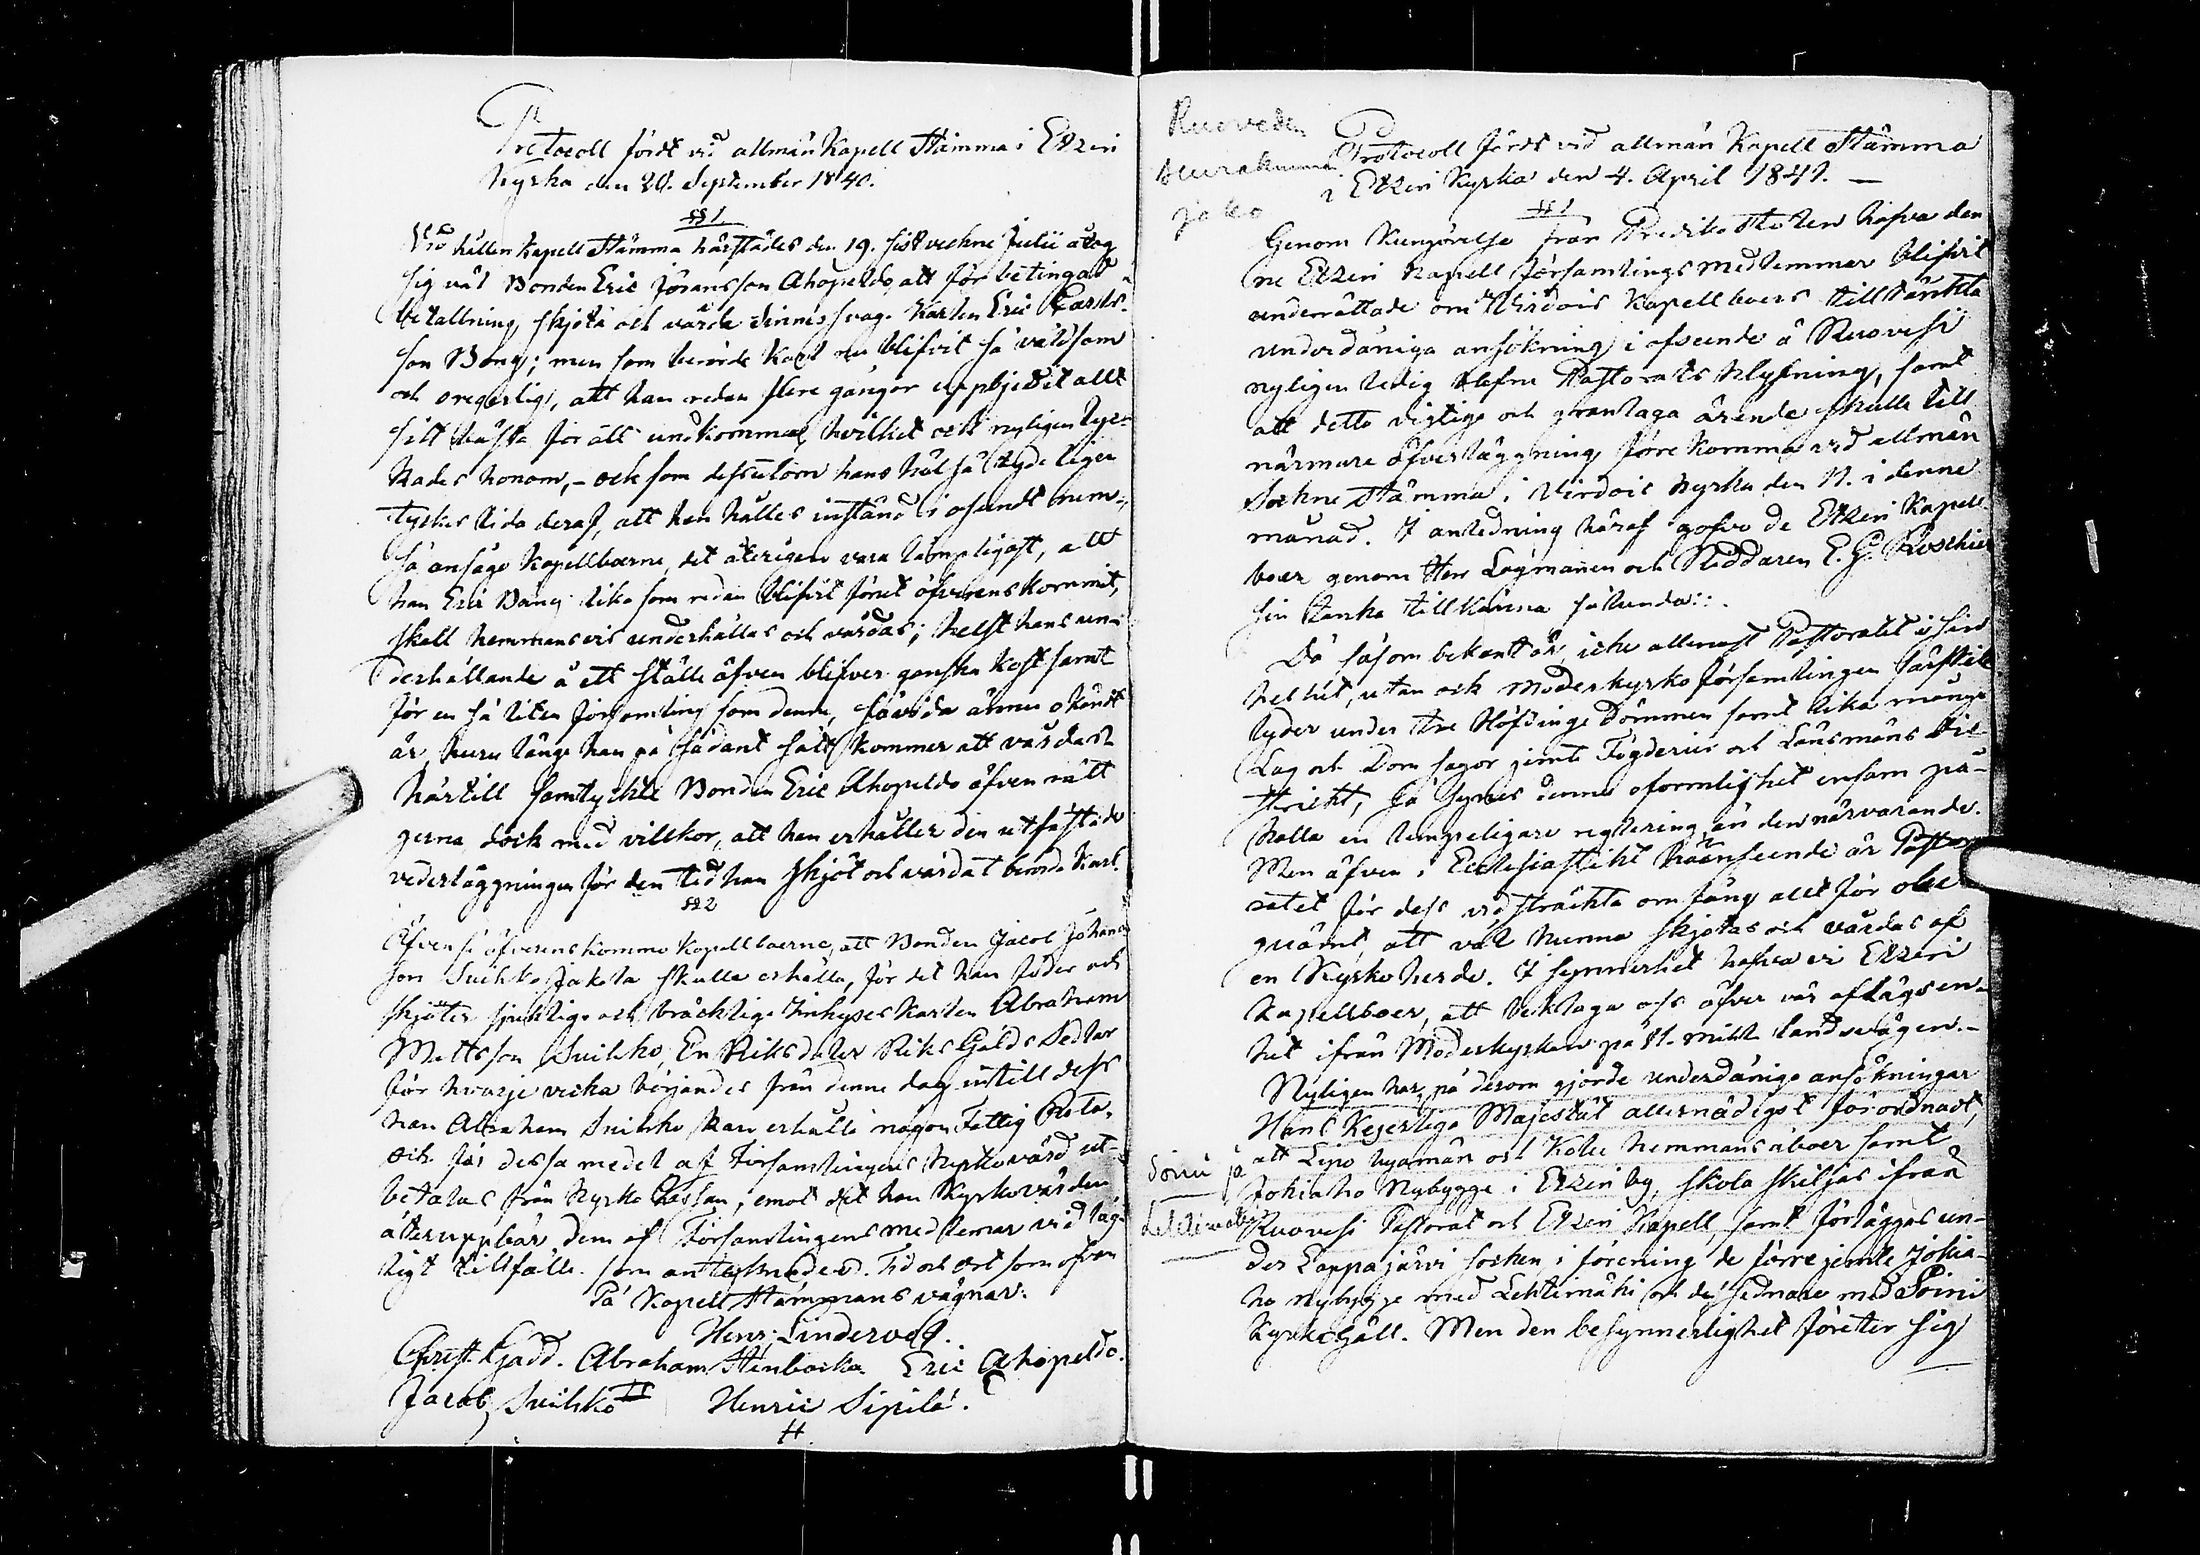 Protocoll fördt vid allmän Kapell Stämma i Etzeri
Kyrka den 20. September 1840.
§§ 1.
Vid hållen Kapell Stämma härstädes den 19. sistvekne Julii åtog
sig väl Bonden Eric Jöransson Ahopeldo, att för betingad
betallning, skjöta och vårda sinnes svage Karlen Eric Carls-
son Bong; men som berörde Karl nu blifvit så våldsam
och oregerlig, att han redan flere gånger uppbjudit allt
sitt bästa för att undkomma, hvilket ock nyligen lyc-
kades honom, - och som dessutom hans hälsa tydeligen
tyckes lida deraf, att han hålles instängd i osundt rum,
så ansågo Kapellboerne, det återigen vara lämpeligast, att
han Eric Bong lika som redan blifvit förut öfverenskommit,
skall hemmansvis underhållas och vårdas; helst hans un-
derhållande å ett ställe äfven blifver ganska kostsamt
för en så liten församling som denna, såvida ännu okändt
är, huru länge han på sådant sätt kommer att vårdas.
Härtill samtyckte Bonden Eric Ahopeldo äfven rätt
gerna dock med villkor, att han erhåller den utfästade
vederläggningen för den tid han skjöt och vårdat berörde Karl.
§§ 2
Äfvenså öfverenskommo Kapellboerne, att Bonden Jacob Johans-
son Suihko Jakola skulle erhålla, för det han föder och
skjöter sjuklige och bräcklige Inhyses Karlen Abraham
Mattsson Suihko, En Riksdaler Riks Gälds Sedlar
för hvarje vecka börjandes från denne dag intill dess
han Abraham Suihko kan erhålla någon Fattig Rota,
och få dessa medel af Församlingens Kyrkovärd ut-
betalas från Kyrko Cassan, emot det han Kyrkovärden
återuppbär dem af Församlingens medlemar vid läg-
ligt tillfälle. som antecknades. Tid och ort som ofvan
På Kapell Stämmans vägnar:
Henr: Lindervall.
Christ. Gadd. Abraham Stenbacka Eric Ahopeldo.
Jacob Suihko Henric Sipilä.
Ruoveden
seurakunnan
jako
Protocoll fördt vid allmän Kapell Stämma
i Etzeri Kyrka den 4. April 1841. —
§§ 1
Genom Kungörelse från Prediko Stolen hafva den
ne Etzeri Kapell Församlings medlemmar blifvit
underrättade om Virdois Kapellboers tilltänkta
underdåniga ansökning i afseende å Ruovesi
nyligen ledig blefne Pastorats klyfning, samt
att detta vigtiga och grantaga ärende skulle till
närmare öfverläggning förekomma vid allmän
Sockne Stämma i Virdois Kyrka den 11. i denne
månad. I anledning häraf gofvo de Etzeri Kapell-
boer genom Herr Lagmannen och Riddaren E. G. Roschier
sin tanka tillkänna sålunda:
Då såsom bekant är, icke allenast Pastoratet i sin
helhet, utan ock Moderkyrko Församlingen särskilt
lyder under tre Höfdinge Dömmen samt lika månge
Lag och Dom sagor jemte Fögderier och Länsmäns Di-
strickt, så synes denne oformlighet ensam på-
kalla en lämpeligare reglering, än den närvarande.
Men äfven i Ecclesiastikt hänseende är Pasto-
ratet för dess vidsträckta omfång allt för obe-
quämt, att väl kunna skjötas och vårdas af
en Kyrkoherde. I synnerhet hafva vi Etzeri
Kapellboer, att beklaga oss öfver vår aflägsen-
het ifrån Moderkyrkan på 11. mihl. landsvägen. -
Nyligen har, på derom gjorde underdånige ansökningar
Hans Kejserlige Majestät allernådigst förordnadt,
Soini ja
att Lipo byamän och Koles hemmans åboer samt
Jokiaho Nybygge i Etzeri by, skola skiljas ifrån
Lehtimäki
Ruovesi Pastorat och Etzeri Kapell, samt förläggas un-
der Lappajärvi socken, i förening de förre jemte Jokia-
ho nybygge med Lehtimäki och de sednare med Soini
Kyrkogäll. Men den besynnerlighet företer sig